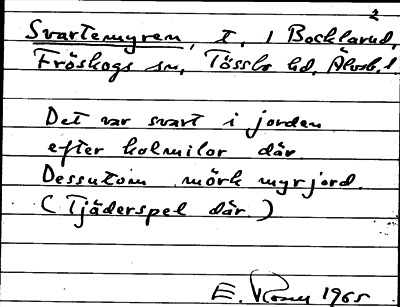 2
Svartemyren, I, i Bocklarud,
Fröskogs sn, Tössbo hd, Älvsb. l.
Det var svart i jorden
efter kolmilor där.
Dessutom mörk myrjord.
(Tjäderspel där)
E. 1965